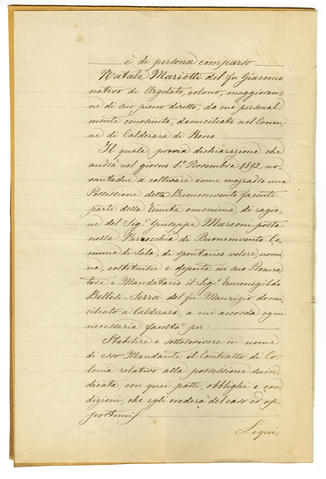 è di persona comparso
Natale Mariotti del fu Giacomo
nativo di Argelato, colono, maggioren-
ne di suo pieno diritto, da me personal-
mente conosciuto, domiciliato nel Comu-
ne di Calderara di Reno
Il quale, previa dichiarazione che
andrà nel giorno 1º Novembre 1892 no-
vantadue a coltivare come mezzadro una
Possessione detta Buonconvento facente
parte della tenuta omonima di ragio-
ne del Sigr. Giuseppe Marconi posta
nella Parrocchia di Buonconvento Co-
mune di Sala, di spontanea volere, nomi-
na, costituisce e deputa in suo Procura-
tore e Mandatario il Sigr. Ermenegildo
Serra del fu Maurizio domi-
ciliato a Calderara, a cui accorda ogni
necessaria facoltà per:
Stabilire e sottoscrivere in nome
di esso Mandante il Contratto di Co-
lonia relativo alla possessione suin-
dicata con quei patti, obblighi e con-
dizioni, che egli crederà del caso ed op-
portuni.